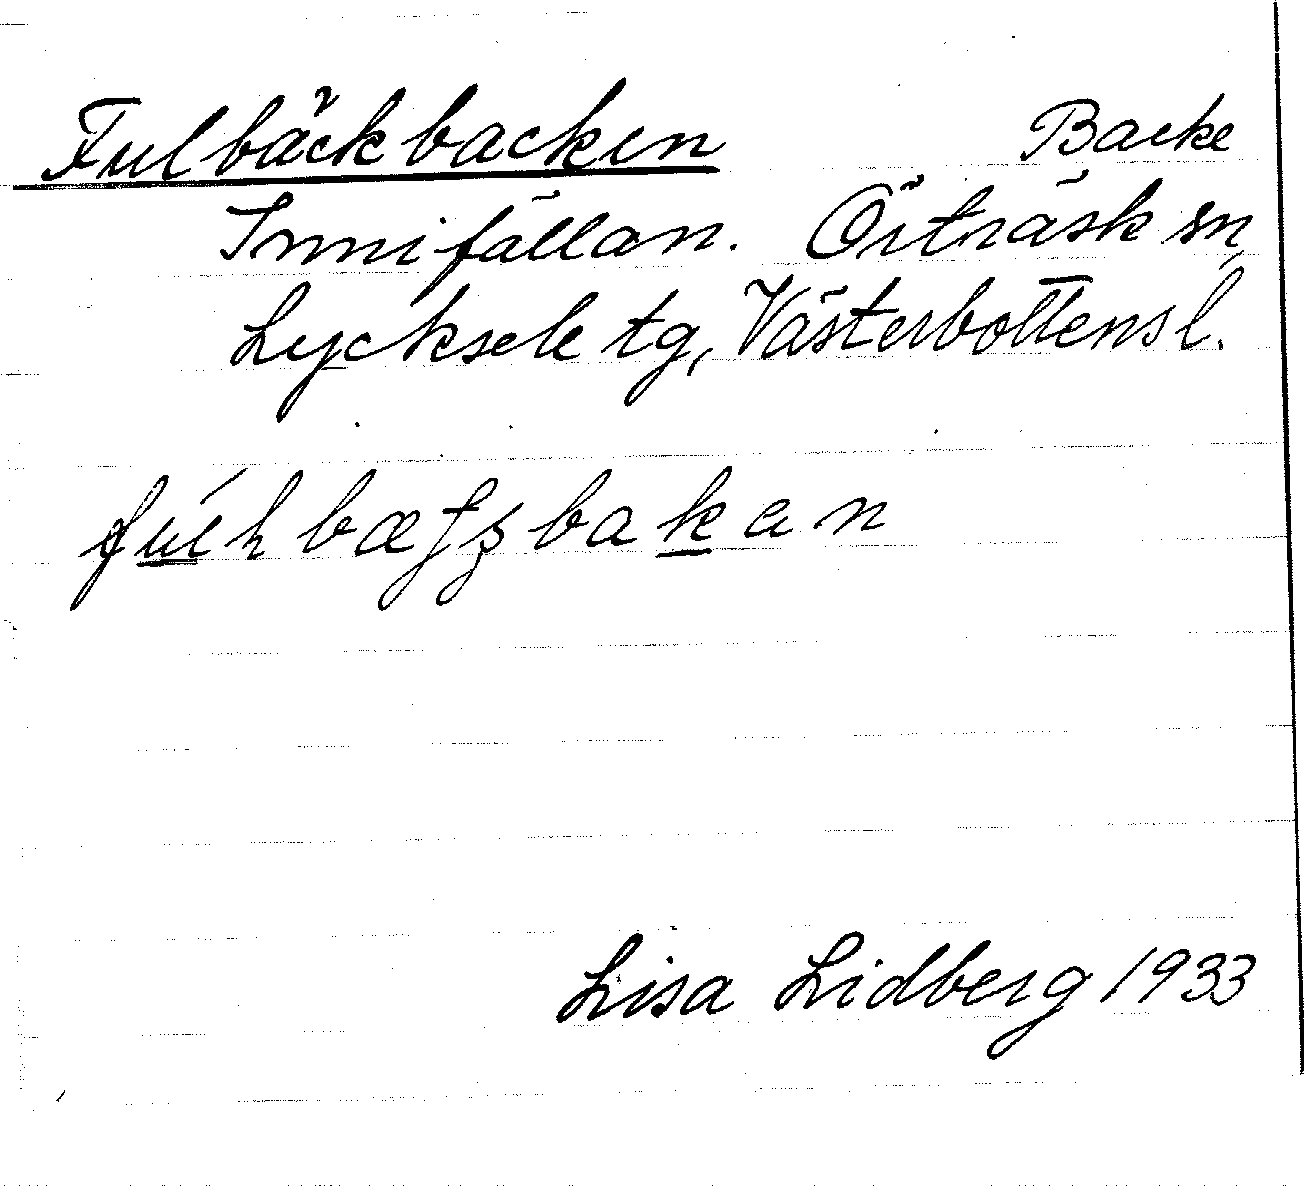 Fulbäckbacken Backe
Innifällan. Örträsk sn,
Lycksele tg, Västerbottens l.
Lisa Lidberg 1933